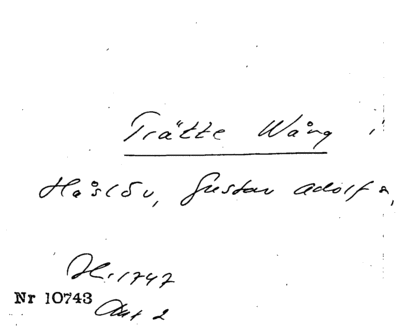 Trätte Wång i
Håslöv, Gustav Adolf s,
H. 1747
Nr 10743
Akt 2